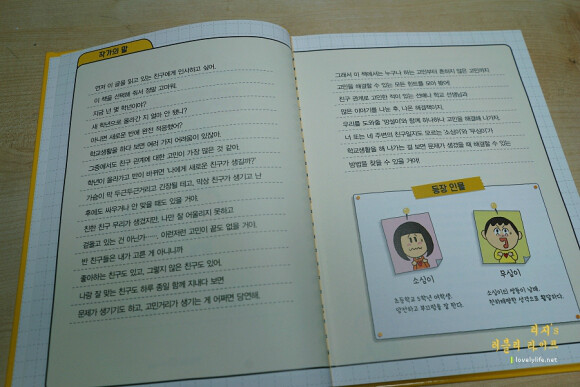 작가의 말
먼저 이 글을 읽고 있는 친구에게 인사하고 싶어.
이 책을 선택해 줘서 정말 고마워.
지금 넌 몇 학년이야?
새 학년으로 올라간 지 얼마 안 됐니?
아니면 새로운 반에 완전 적응했어?
학교생활을 하다 보면 여러 가지 어려움이 있잖아.
그중에서도 친구 관계에 대한 고민이 가장 많은 것 같아.
학년이 올라가고 반이 바뀌면 '나에게 새로운 친구가 생길까?'
가슴이 막 두근두근거리고 긴장될 테고, 막상 친구가 생기고 난
후에도 싸우거나 안 맞을 때도 있을 거야.
친한 친구 무리가 생겼지만, 나만 잘 어울리지 못하고
겉돌고 있는 건 아닌가……. 이런저런 고민이 끝도 없을 거야.
반 친구들은 내가 고른 게 아니니까
좋아하는 친구도 있고, 그렇지 않은 친구도 있어.
나랑 잘 맞는 친구도 하루 종일 함께 지내다 보면
문제가 생기기도 하고, 고민거리가 생기는 게 어쩌면 당연해.
그래서 이 책에서는 누구나 하는 고민부터 흔하지 않은 고민까지
고민을 해결할 수 있는 모든 힌트를 모아 봤어!
친구 관계로 고민한 적이 있는 선배나 학교 선생님과
많은 이야기를 나눈 후, 나온 해결책이지.
우리를 도와줄 '멍셈이'와 함께 하나하나 고민을 해결해 나가자.
너 또는 네 주변의 친구일지도 모르는 '소심이'와 '무심이'가
학교생활을 해 나가는 걸 보면 문제가 생겼을 때 해결할 수 있는
방법을 찾을 수 있을 거야!
등장 인물
소심이
초등학교 5학년 여학생.
얌전하고 부끄럼을 잘 탄다.
무심이
소심이의 쌍둥이 남매.
천하태평한 성격으로 활발하다.
리지's
러블리 라이프
lovelylife.net